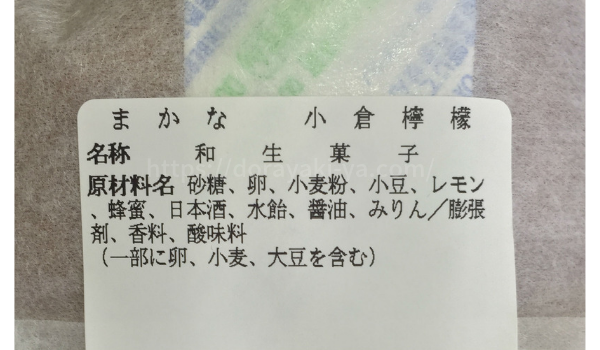 まかな 小倉檸檬
名称 和生菓子
原材料名 砂糖、卵、小麦粉、小豆、レモン
、蜂蜜、日本酒、水飴、醤油、みりん／膨張
剤、香料、酸味料
（一部に卵、小麦、大豆を含む）